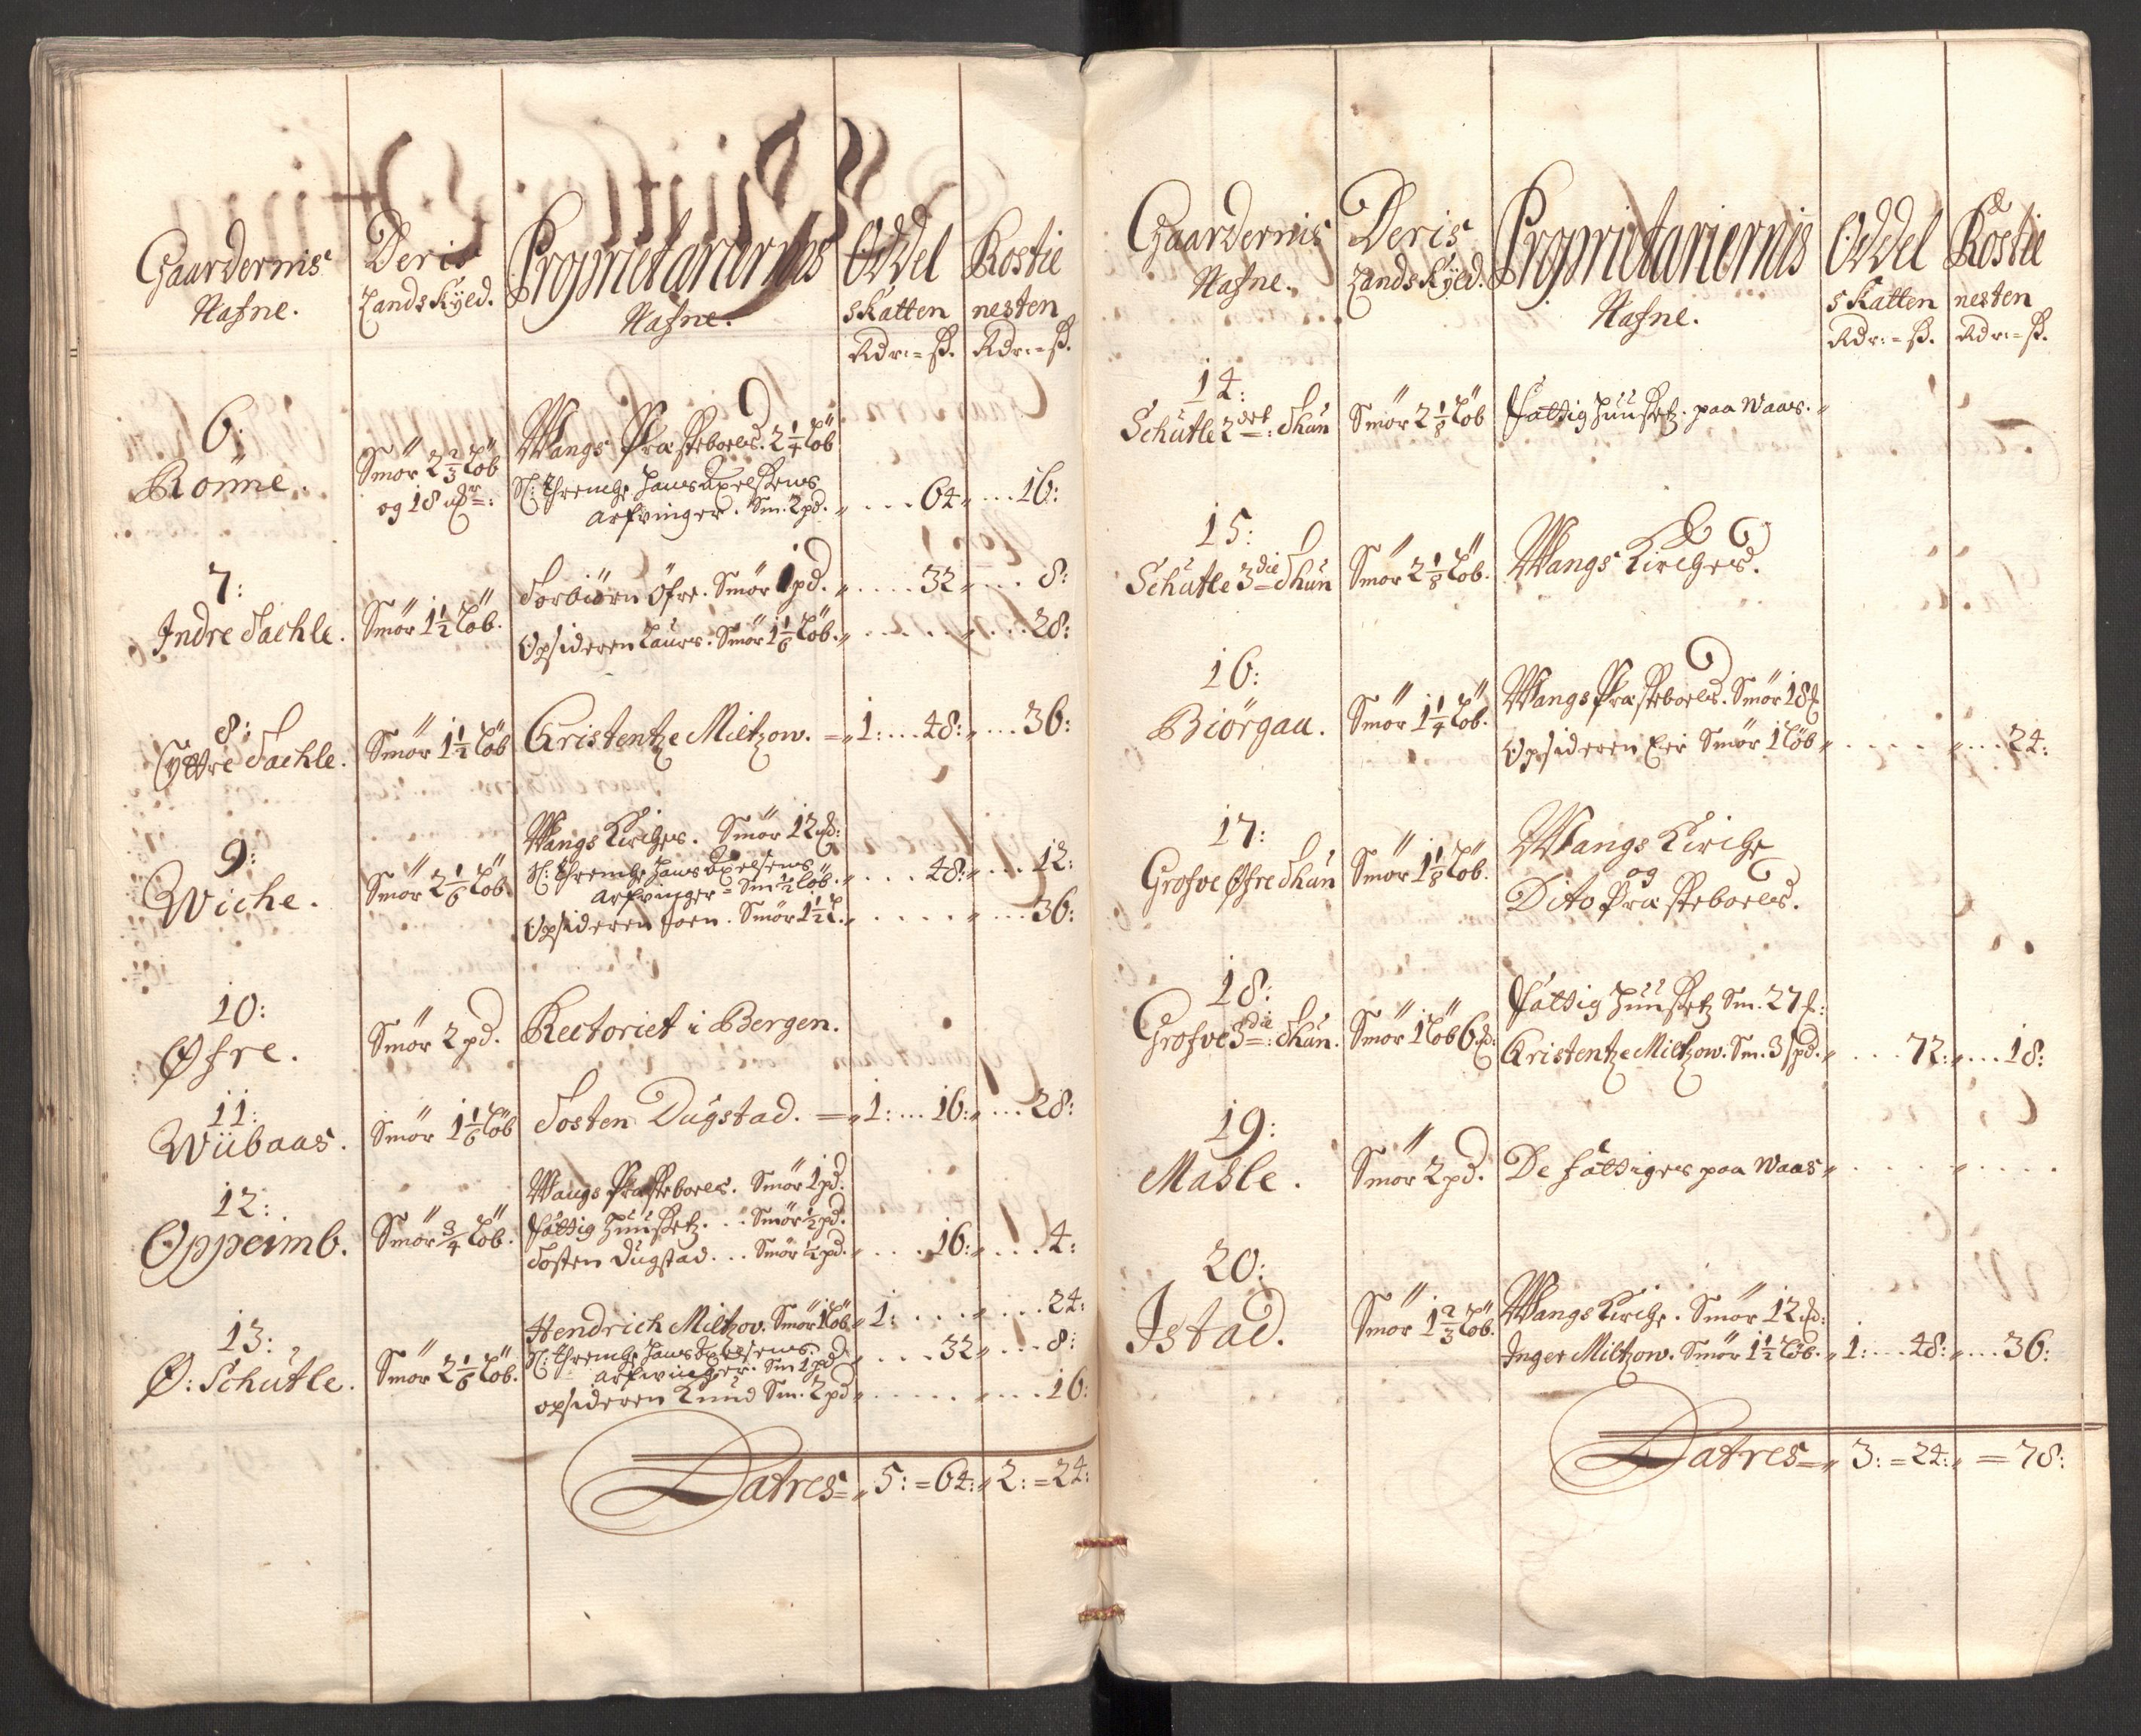 Gaardernis
Nafne.
Deris
Landskyld.
Proprietariernis
Nafne.
Oddel
skatten
Rdr:=ß.
Rostie
nesten
Rdr:=ß.
6:
Rönne.
Smör 2 2/3 Löb
og 18
Wangs Præsteboels. 2 1/4 Löb
Sl: Hans Axelsens
Arfvinger. Sm: 2 pd. „ ... 64 „ ... 16:
7:
Indre Sachle.
Smör 1 1/2 Löb.
Torbiörn Öfre. Smör 1 pd. „ .... 32 „ ... 8:
Opsideren Laurs. Smör 1 1/6 Löb. „ ...... „ ... 28:
8:
Yttre Sachle.
Smör 1 1/2 Löb
Cristentze Miltzow. = „ 1: ... 48: „ ... 36:
9:
Wiche.
Smör 2 1/6 Löb.
Wangs Kirches. Smör 12
Sl: Hans Axelsens
Arfvinger = Sm 1/2 Löb. „ ... 48: „ ... 12:
Opsideren Joen. Smör 1 1/2 L. „ ..... „ ... 36:
10:
Øfre.
Smör 2 pd.
Rectoriet i Bergen.
11:
Wiibaas.
Smör 1 1/6 Löb
Tosten Dugstad. = „ 1: ... 16: „ ... 28:
12:
Oppeimb.
Smör 3/4 Löb.
Wangs Præsteboels. Smör 1 pd.
Fattig Huusetz. .. Smör 1/2 pd.
Tosten Dugstad. .. Smör 1/2 pd. „ ... 16: „ ... 4:
13:
Ø: Schutle.
Smör 2 1/6 Löb.
Hendrich Miltzov. Smör 1 Löb „ 1: .... „ ... 24:
Sl: Hans Axelsens
Arfvinger. Sm 1 pd „ ... 32 „ ... 8:
opsideren Knud Sm. 2 pd „ ..... „ ... 16:
Latres = „ 5: = 64: „ 2: = 24:
Gaardernis
Nafne.
Deris
Landskyld.
Proprietariernis
Nafne.
Oddel
skatten
Rdr:=ß.
Rostie
nesten
Rdr:=ß.
14:
Schutle 2det: Thun
Smör 2 1/8 Löb
Fattig Huusetz. paa Waas. „
15:
Schutle 3die Thun
Smör 2 1/8 Löb.
Wangs Kirches.
16:
Biörgaa.
Smör 1 1/4 Löb.
Wangs Præsteboels. Smör 18
Opsideren Eir Smör 1 Löb „ .... „ ... 24:
17:
Grofve Øfre Thun
Smör 1 1/8 Löb.
Wangs Kirche
og
Dito Præsteboels.
18:
Grofve 3die: Thun.
Smör 1 Löb 6
Fattig Huusetz Sm. 27
Cristentze Miltzow. Sm. 3 spd. „ ... 72: „ ... 18:
19:
Mahle.
Smör 2 pd.
De fattiges paa Waas „ .... „ ....
20:
Istad.
Smör 1 2/3 Löb.
Wangs Kirche. Smör 12
Inger Miltzow. Smör 1 1/2 Löb. „ 1: ... 48: „ ... 36:
Latres = „ 3: = 24: „ = 78: